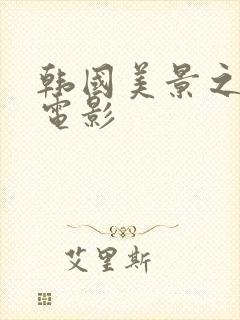 韩國美景之
電影
艾里斯